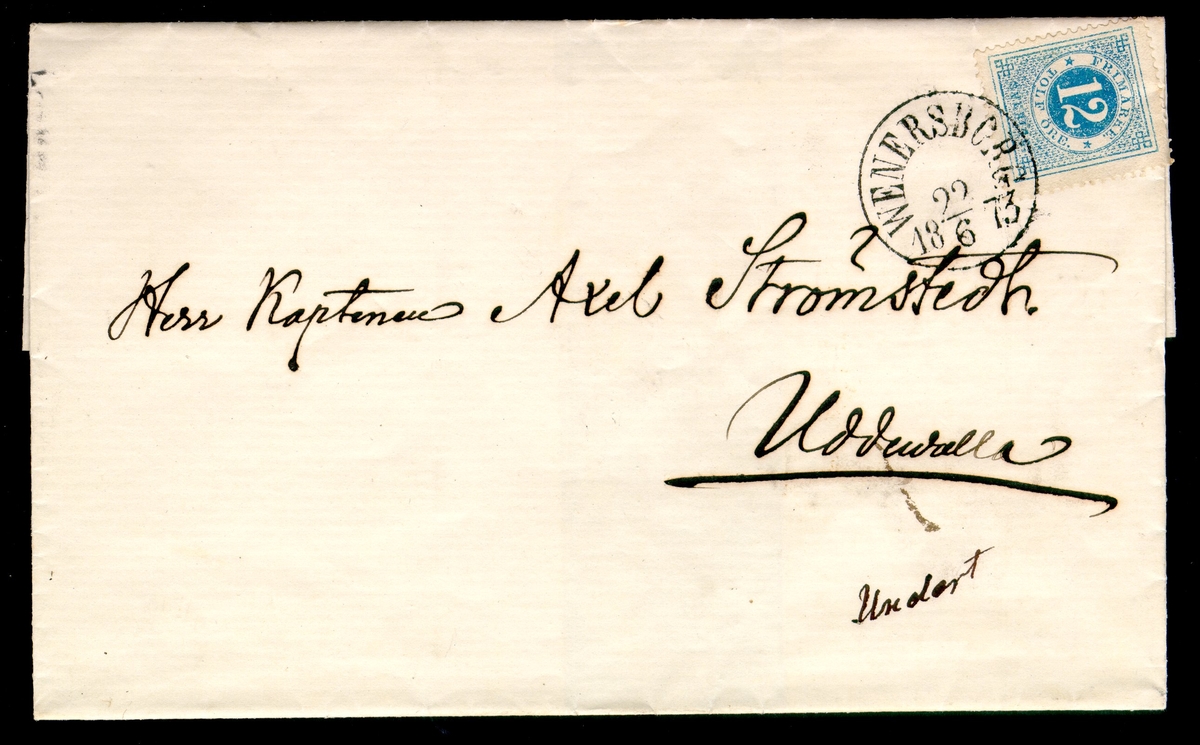 FRIMÄRKE. TOLF ÖRE.
12
WENERSBORG
22
18 6 73
Herr Kaptenen Axel Strömstedh.
Uddewalla